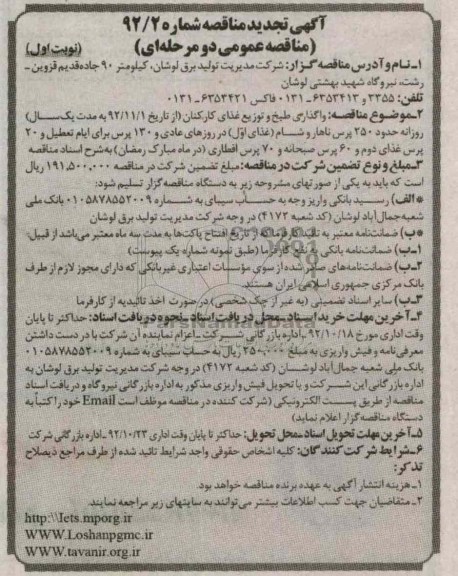 آگهی تجدید مناقصه شماره ۹۲/۲
(مناقصه عمومی دو مرحله‌ای)
(نوبت اول)
۱- نام و آدرس مناقصه گزار: شرکت مدیریت تولید برق لوشان، کیلومتر ۹۰ جاده قدیم قزوین -
رشت، نیروگاه شهید بهشتی لوشان
تلفن: ۳۳۵۵ و ۶۳۵۳۴۱۳-۰۱۳۱ فاکس ۶۳۵۳۴۲۱-۰۱۳۱
۲- موضوع مناقصه: واگذاری طبخ و توزیع غذای کارکنان (از تاریخ ۹۲/۱۱/۱ به مدت یک سال)
روزانه حدود ۲۵۰ پرس ناهار و شام (غذای اول) در روزهای عادی و ۱۳۰ پرس برای ایام تعطیل و ۲۰
پرس غذای دوم و ۶۰ پرس صبحانه و ۷۰ پرس افطاری (در ماه مبارک رمضان) به شرح اسناد مناقصه
۳- مبلغ و نوع تضمین شرکت در مناقصه: مبلغ تضمین شرکت در مناقصه ۱۹۱,۵۰۰,۰۰۰ ریال
است که باید به یکی از صورتهای مشروحه زیر به دستگاه مناقصه گزار تسلیم شود:
* الف) رسید بانکی واریز وجه به حساب سیبای به شماره ۰۱۰۵۸۷۸۵۵۲۰۰۹ بانک ملی
شعبه جمال‌آباد لوشان (کد شعبه ۴۱۷۲) در وجه شرکت مدیریت تولید برق لوشان
* ب) ضمانت‌نامه معتبر به نفع کارفرما که از تاریخ افتتاح پاکت‌ها به مدت سه ماه معتبر می‌باشد از قبیل:
۱-ب) ضمانت‌نامه بانکی به نفع کارفرما (طبق نمونه شماره یک پیوست)
۲-ب) ضمانت‌نامه‌های صادر شده از سوی مؤسسات اعتباری غیربانکی که دارای مجوز لازم از طرف
بانک مرکزی جمهوری اسلامی ایران هستند.
۳-ب) سایر اسناد تضمینی (به غیر از چک شخصی) در صورت اخذ تائیدیه از کارفرما
۴- آخرین مهلت خرید اسناد - محل دریافت اسناد - نحوه دریافت اسناد: حداکثر تا پایان
وقت اداری مورخ ۹۲/۱۰/۱۸ - اداره بازرگانی شرکت - اعزام نماینده آن شرکت با در دست داشتن
معرفی‌نامه و فیش واریزی به مبلغ ۲۵۰,۰۰۰ ریال به حساب سیبای به شماره ۰۱۰۵۸۷۸۵۵۲۰۰۹
بانک ملی شعبه جمال‌آباد لوشان (کد شعبه ۴۱۷۲) در وجه شرکت مدیریت تولید برق لوشان به
اداره بازرگانی این شرکت و با تحویل فیش واریزی مذکور به اداره بازرگانی نیروگاه و دریافت اسناد
مناقصه از طریق پست الکترونیکی (شرکت کننده در مناقصه موظف است Email خود را کتباً به
دستگاه مناقصه گزار اعلام نماید)
۵- آخرین مهلت تحویل اسناد - محل تحویل: حداکثر تا پایان وقت اداری ۹۲/۱۰/۲۳ - اداره بازرگانی شرکت
۶- شرایط شرکت کنندگان: کلیه اشخاص حقوقی واجد شرایط تائید شده از طرف مراجع ذیصلاح
تذکر:
۱- هزینه انتشار آگهی به عهده برنده مناقصه خواهد بود.
۲- متقاضیان جهت کسب اطلاعات بیشتر می‌توانند به سایتهای زیر مراجعه نمایند.
http:\\Iets.mporg.ir
WWW.Loshanpgmc.ir
WWW.tavanir.org.ir